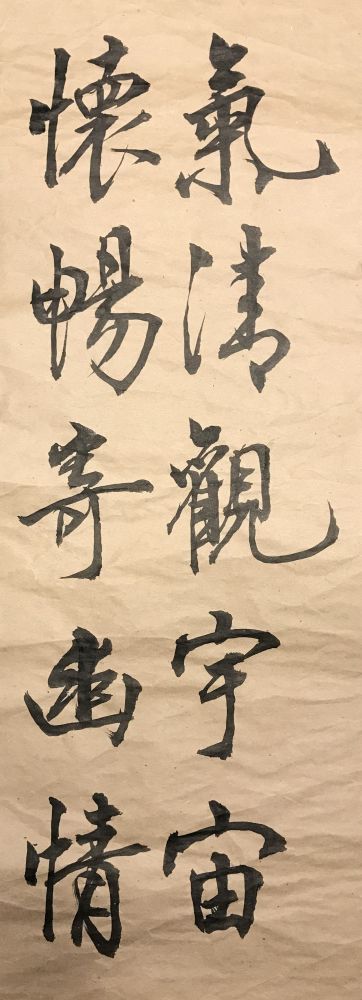 氣清觀宇宙
懷暢寄幽情